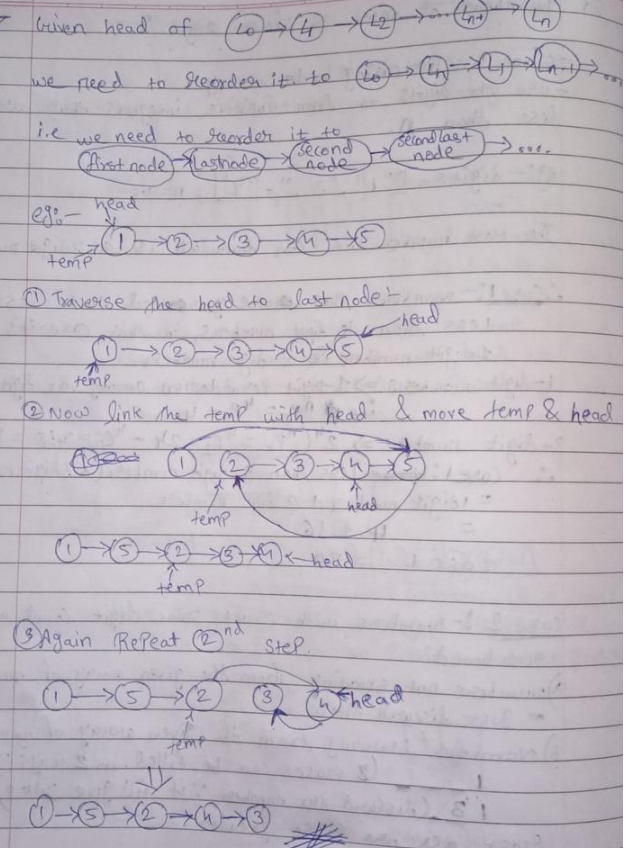 Given head of L0 → L1 → L2 → ... Ln-1 → Ln
we need to reorder it to L0 → Ln → L1 → Ln-1 → ....
i.e we need to reorder it to
first node → last node → second node → second last node → ....
eg:- head
1 → 2 → 3 → 4 → 5
temp
① Traverse the head to last node:-
head
1 → 2 → 3 → 4 → 5
temp
② Now link the temp with head & move temp & head
1 2 → 3 → 4 → 5
temp head
1 → 5 → 2 → 3 → 4 ← head
temp
③ Again Repeat ②nd step.
1 → 5 → 2 3 4 ← head
temp
⇓
1 → 5 → 2 → 4 → 3